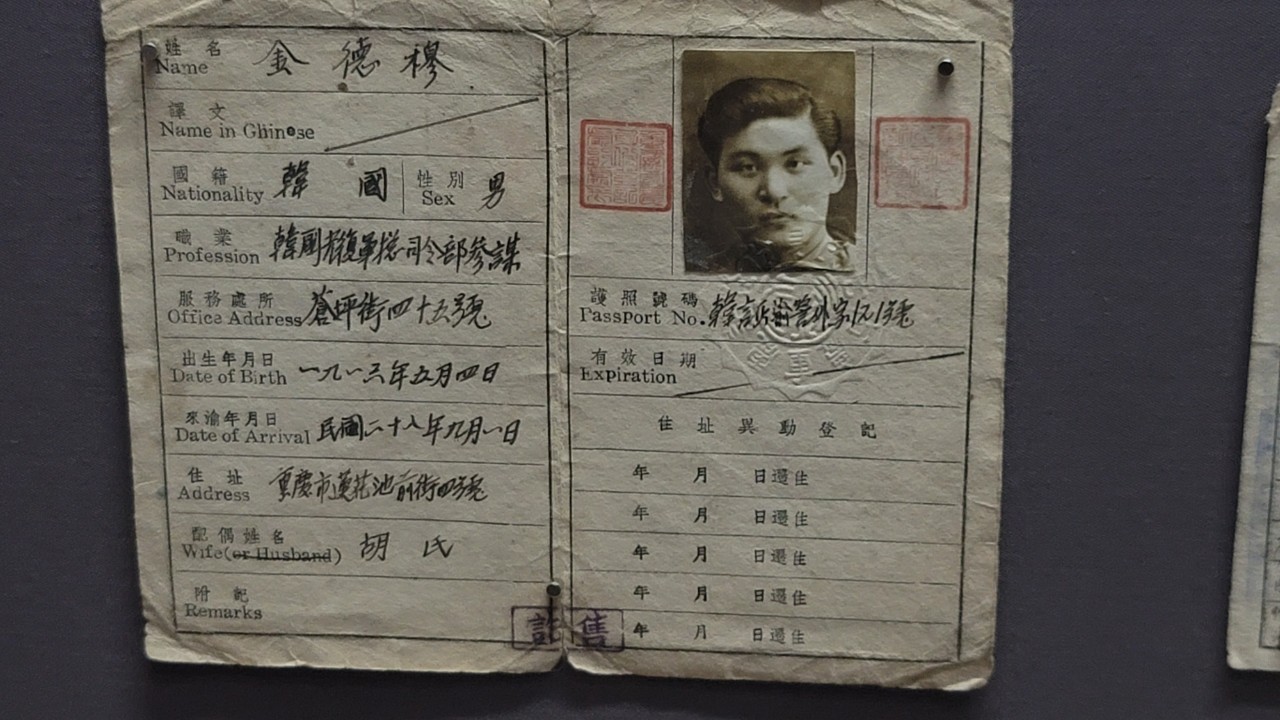 姓名 金德穆
Name
譯文
Name in Chinese
國籍 韓國 性別 男
Nationality Sex
職業 韓國光復軍總司令部參謀
Profession
服務處所 蒼坪街四十五號
Office Address
出生年月日 一九一三年五月四日
Date of Birth
來渝年月日 民國二十八年九月一日
Date of Arrival
住址 重慶市蓮花池前街四號
Address
配偶姓名 胡氏
Wife (or Husband)
附記
Remarks
護照號碼
Passport No.
有效日期
Expiration
住址異動登記
年 月 日遷住
年 月 日遷住
年 月 日遷住
年 月 日遷住
年 月 日遷住